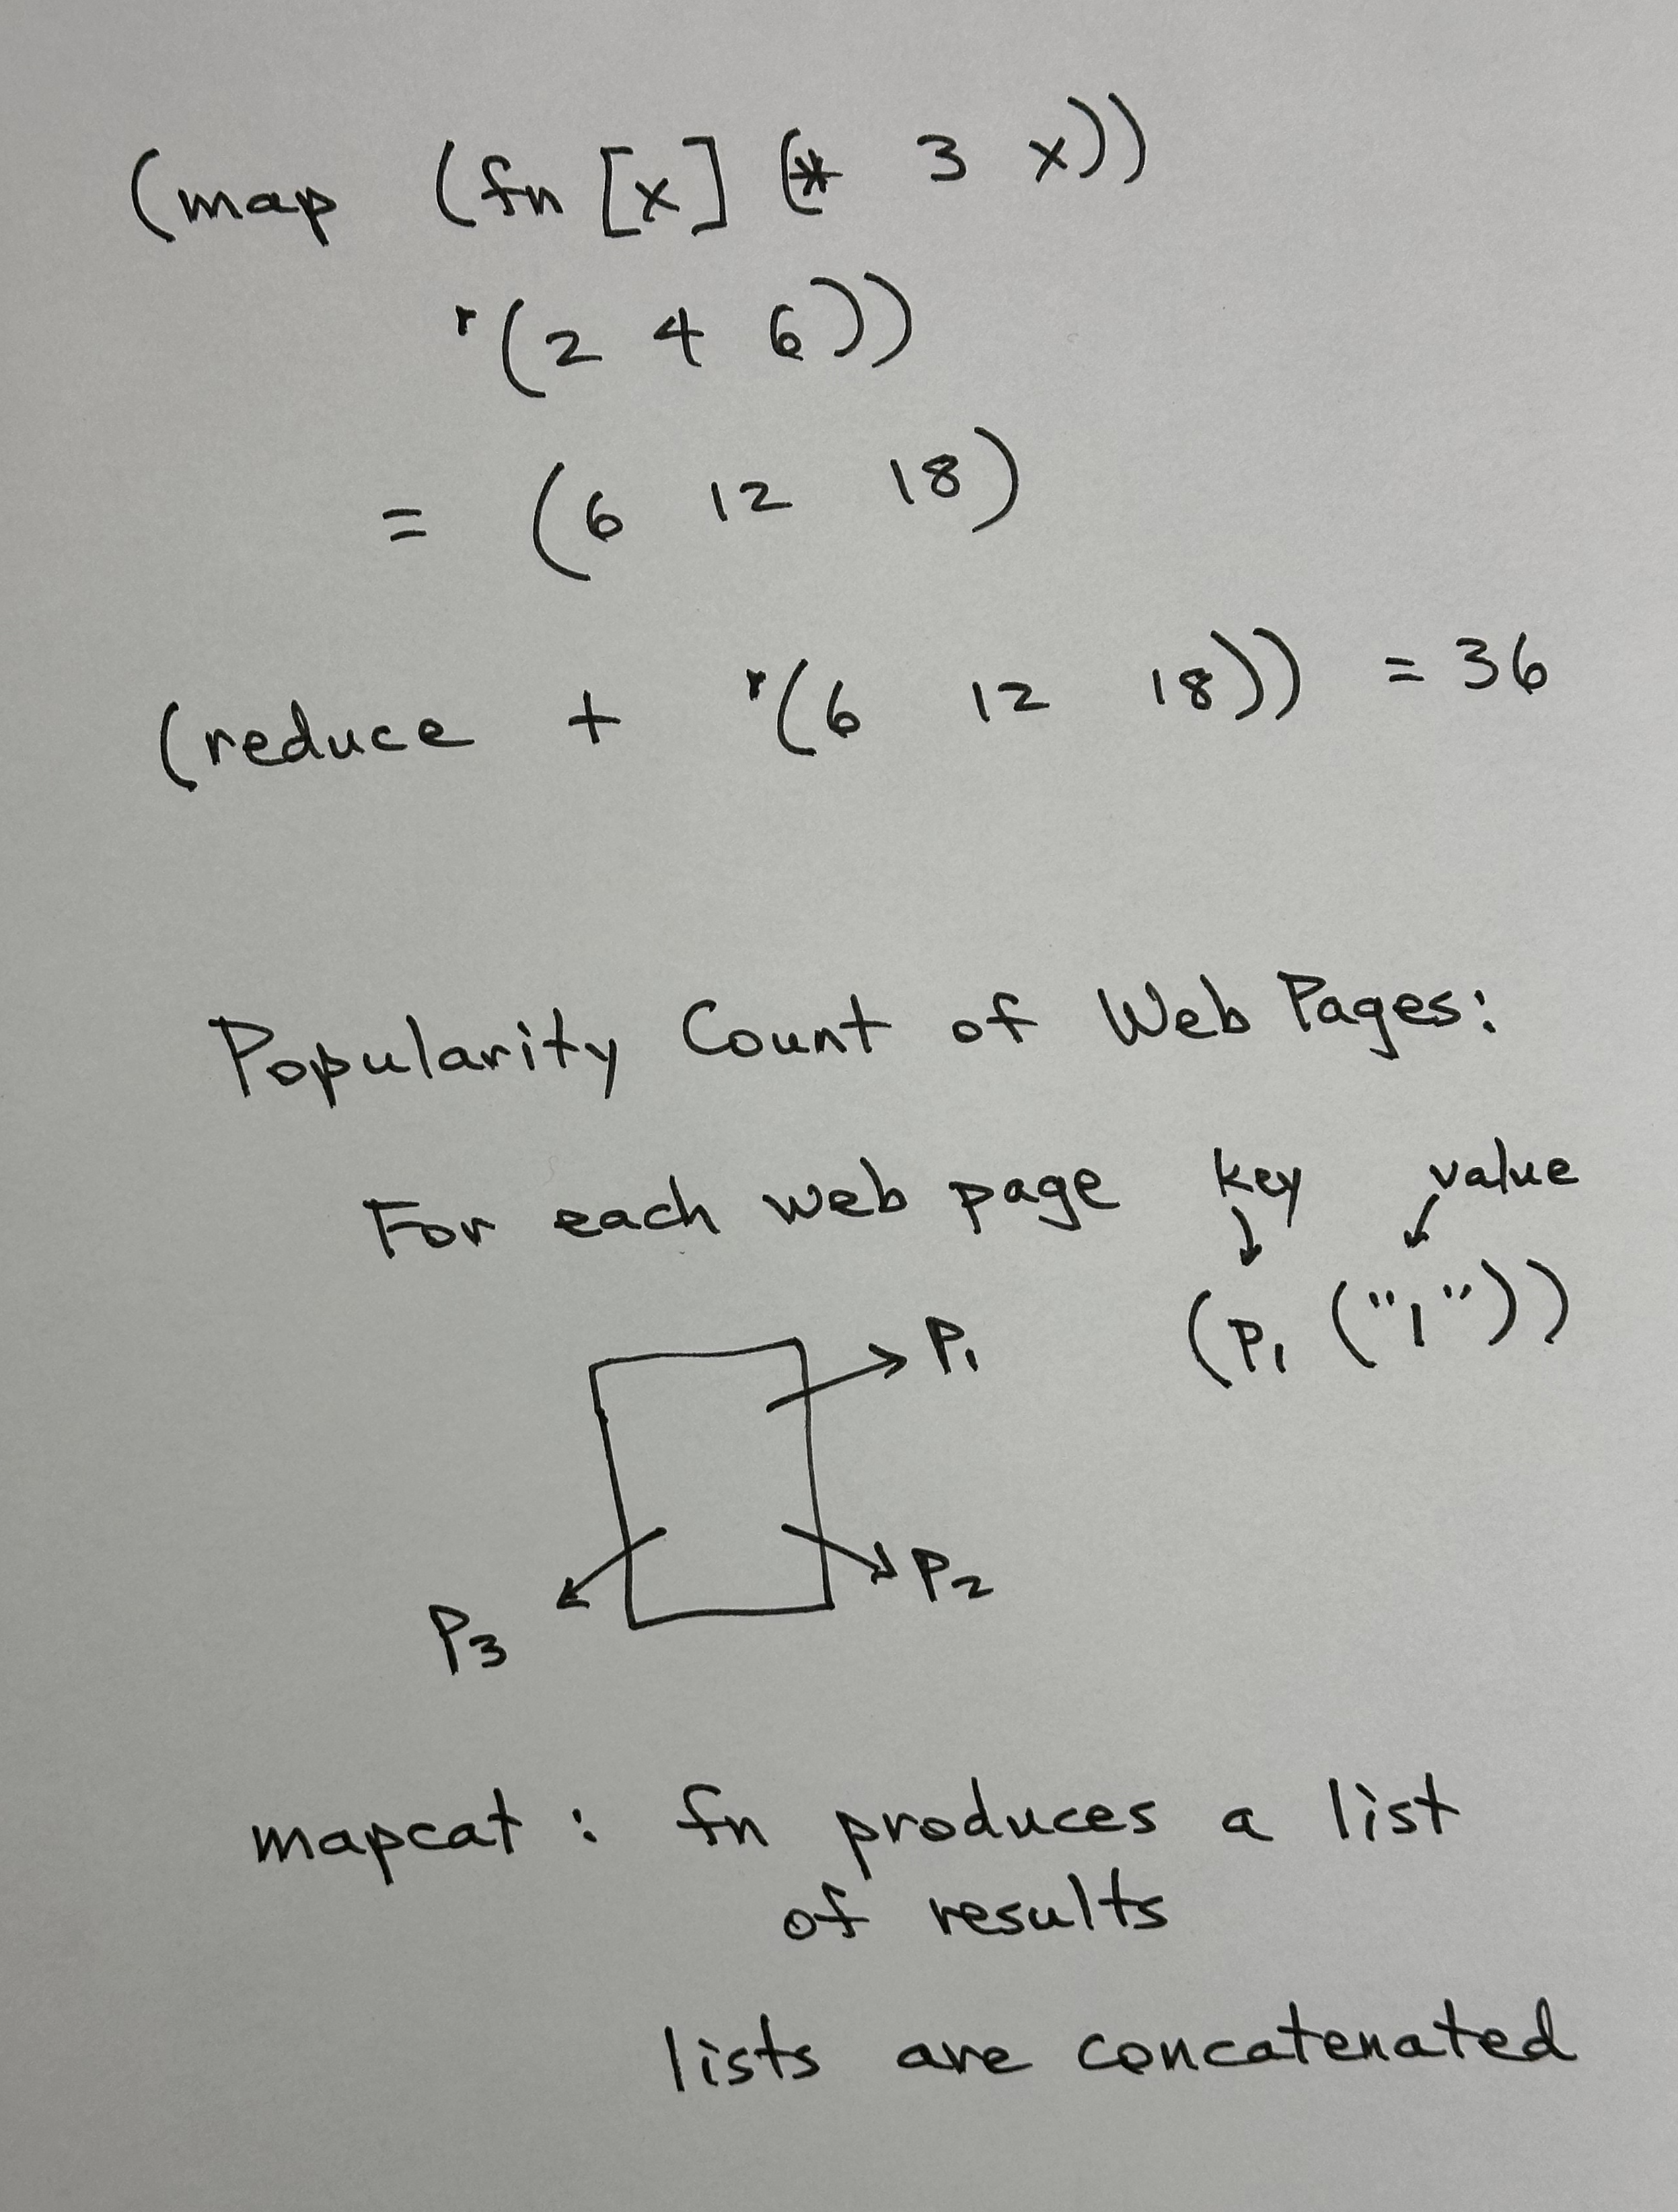 (map (fn [x] (* 3 x))
'(2 4 6))
= (6 12 18)
(reduce + '(6 12 18)) = 36
Popularity Count of Web Pages:
For each web page
key value
(P1 ("1"))
P1
P2
P3
mapcat : fn produces a list
of results
lists are concatenated